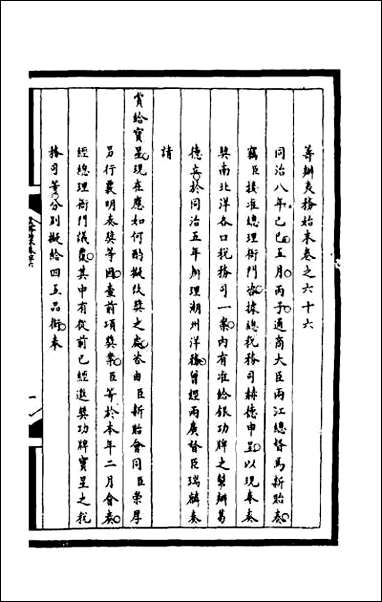 籌辦夷務始末卷之六十六
同治八年己巳五月丙子通商大臣兩江總督馬新貽奏
竊臣接准總理衙門咨據總稅務司赫德申呈以現奉奏
奬南北洋各口稅務司一案內有准給銀功牌之幫辦葛
德立於同治五年辦理潮州洋務曾經兩廣督臣瑞麟奏
請
賞給寶星現在應如何酌擬給奬之處咨由臣新貽會同臣崇厚
另行裏明奏奬等因查前項奬案臣等於本年二月會奏
經總理衙門議覆其中有從前已經邀奬功牌寶星之稅
務司等分別擬給四五品銜奉